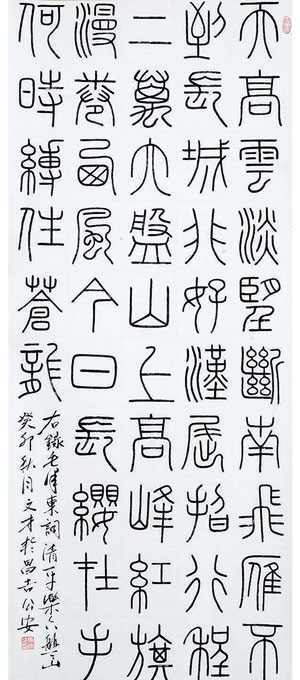 天高雲淡望斷南飛雁不
到長城非好漢屈指行程
二萬六盤山上高峰紅旗
漫卷西風今日長纓在手
何時縛住蒼龍
右錄毛澤東詞清平樂六盤山
癸卯秋月文才於昌吉公安